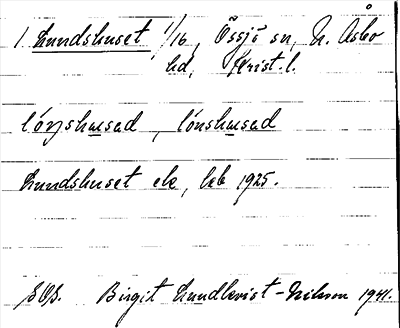 1. Lundshuset 1/16, Össjö sn, N. Åsbo
hd, Krist. l.
lóŋshusad, lónshusad
Lundshuset ek, lkb 1925.
SOS. Birgit Lundkvist-Nilsson 1941.